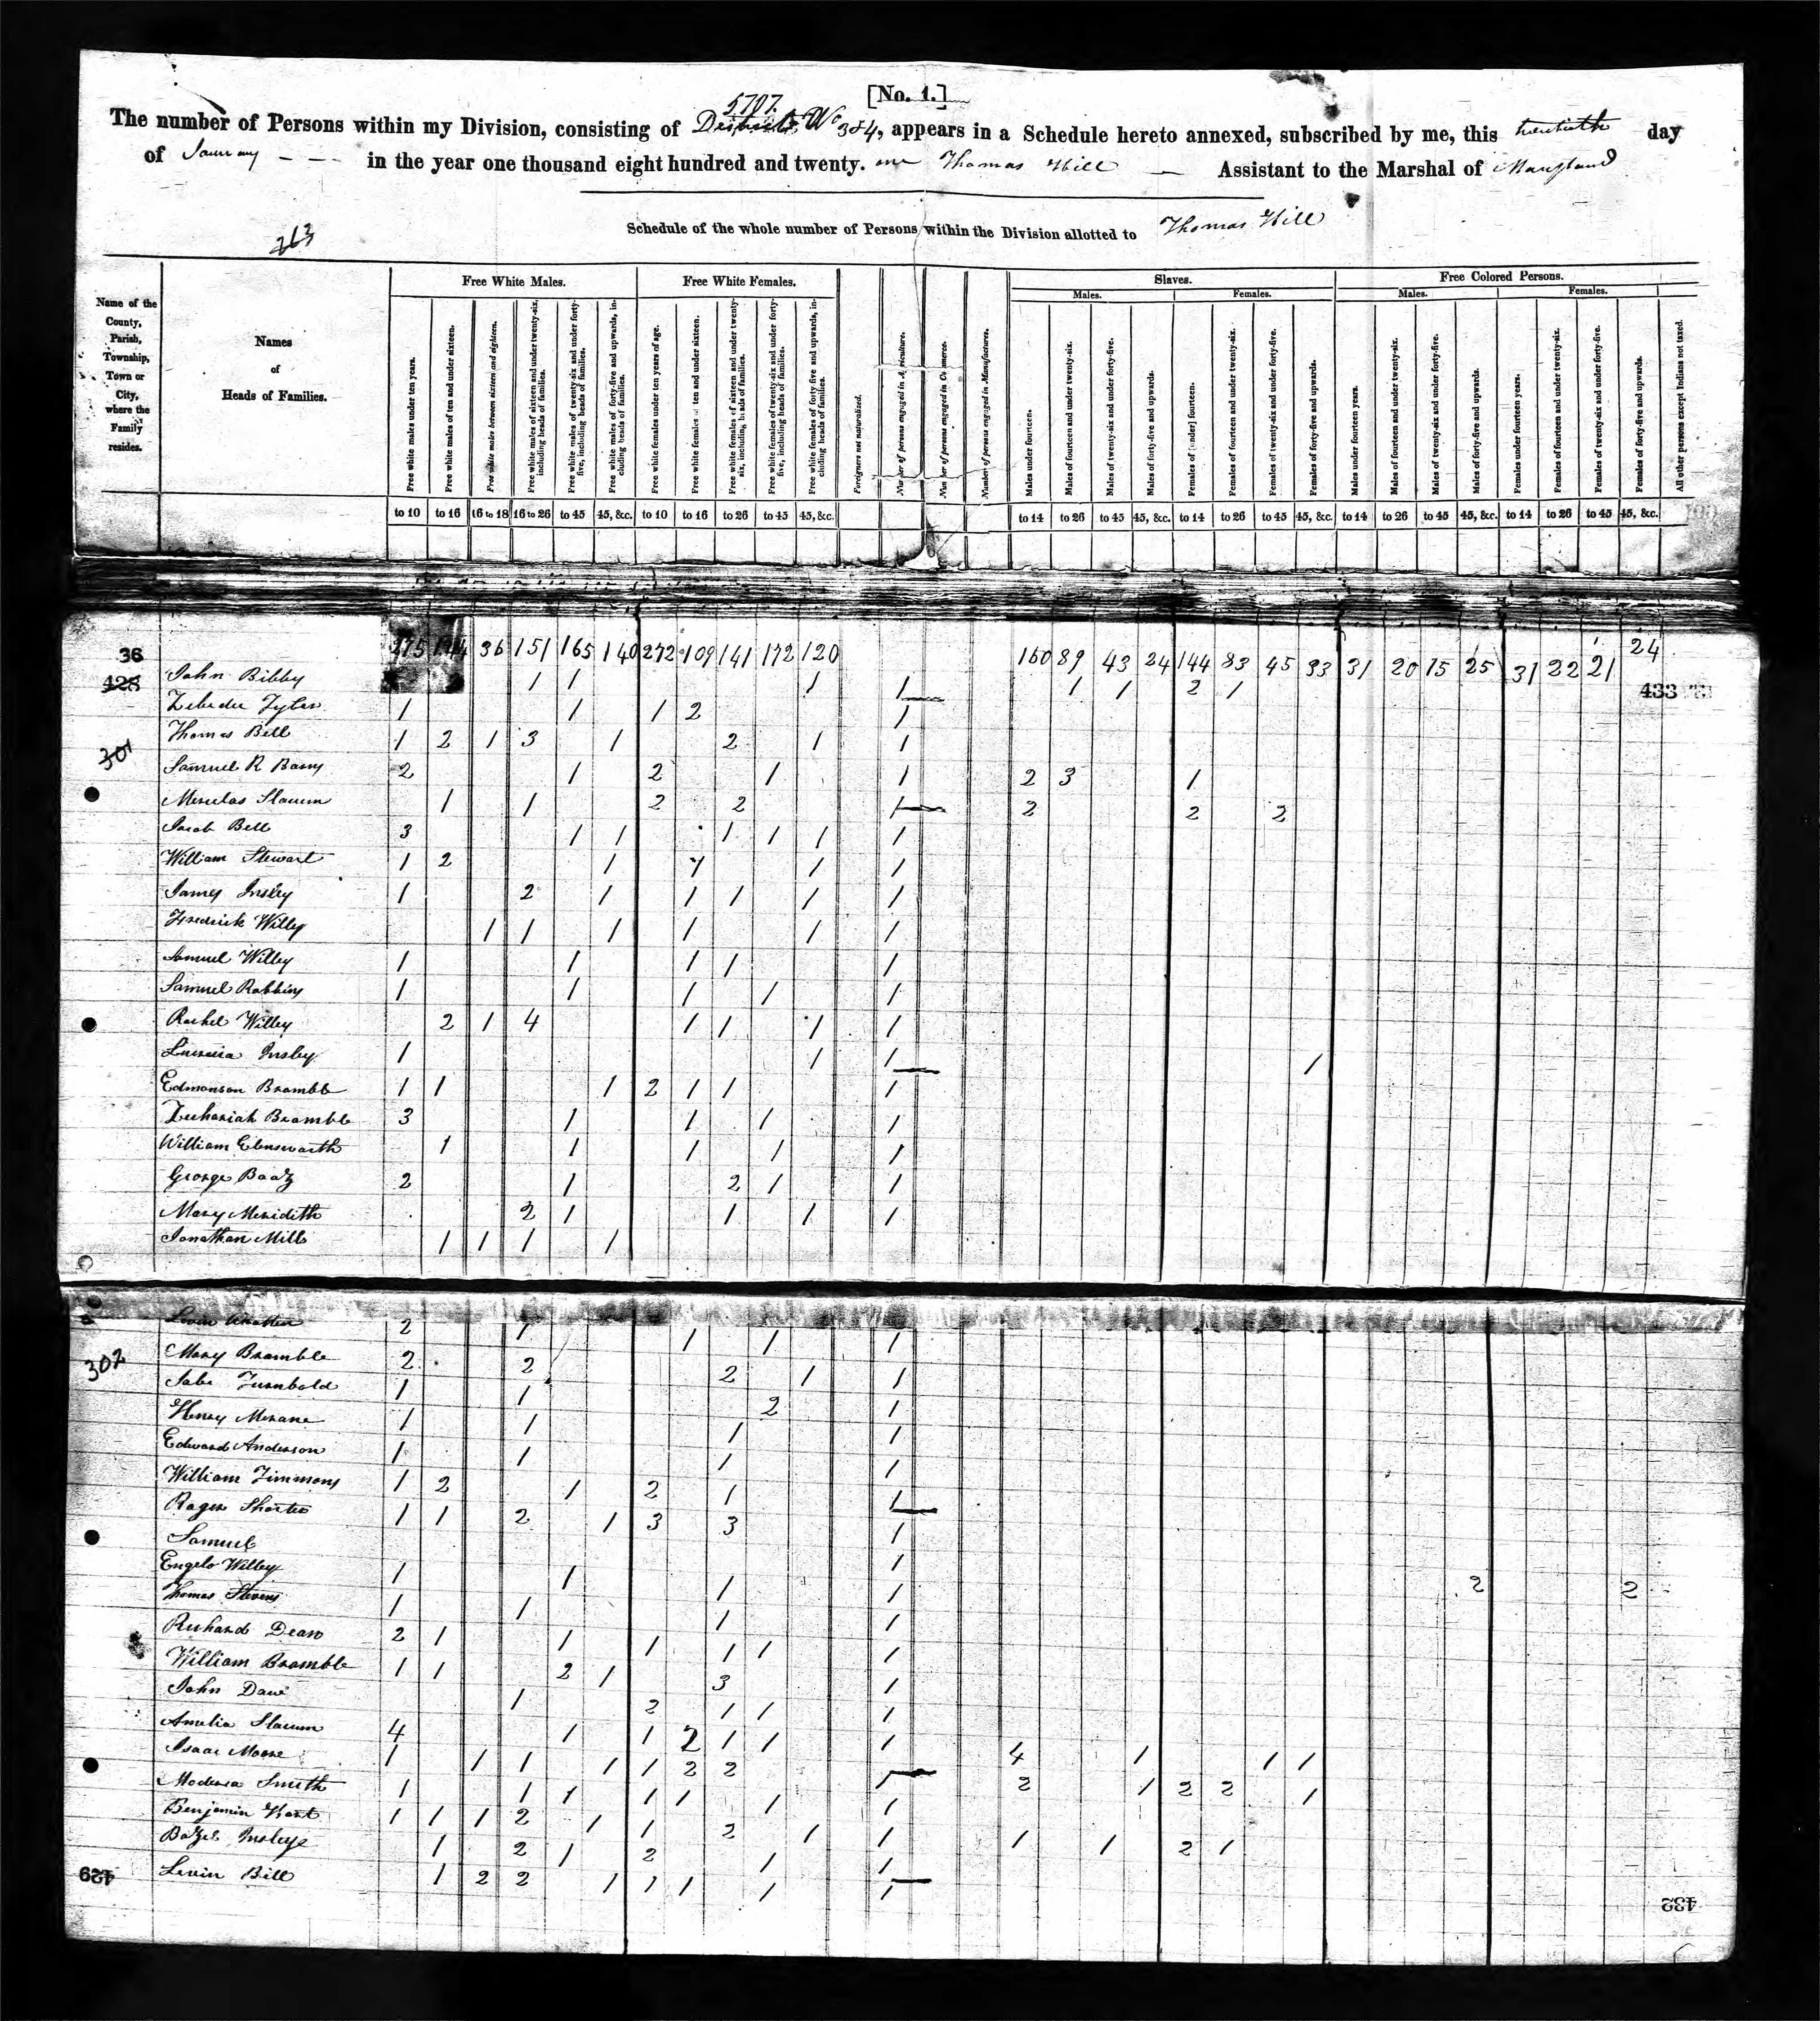 [No. 1.]
5707
The number of Persons within my Division, consisting of Districts No 3 & 4, appears in a Schedule hereto annexed, subscribed by me, this twentieth day
of January - - - in the year one thousand eight hundred and twenty. one Thomas Hill — Assistant to the Marshal of Maryland
Schedule of the whole number of Persons within the Division allotted to Thomas Hill
263
Name of the County, Parish, Township, Town or City, where the Family resides.
Names of Heads of Families.
Free White Males.
Free White Females.
Slaves.
Free Colored Persons.
Males. Females. Males. Females.
Free white males under ten years.
Free white males of ten and under sixteen.
Free white males between sixteen and eighteen.
Free white males of sixteen and under twenty-six, including heads of families.
Free white males of twenty-six and under forty-five, including heads of families.
Free white males of forty-five and upwards, including heads of families.
Free white females under ten years of age.
Free white females of ten and under sixteen.
Free white females of sixteen and under twenty-six, including heads of families.
Free white females of twenty-six and under forty-five, including heads of families.
Free white females of forty five and upwards, including heads of families.
Foreigners not naturalized.
Number of persons engaged in Agriculture.
Number of persons engaged in Commerce.
Number of persons engaged in Manufactures.
Males under fourteen.
Males of fourteen and under twenty-six.
Males of twenty-six and under forty-five.
Males of forty-five and upwards.
Females of [under] fourteen.
Females of fourteen and under twenty-six.
Females of twenty-six and under forty-five.
Females of forty-five and upwards.
Males under fourteen years.
Males of fourteen and under twenty-six.
Males of twenty-six and under forty-five.
Males of forty-five and upwards.
Females under fourteen years.
Females of fourteen and under twenty-six.
Females of twenty-six and under forty-five.
Females of forty-five and upwards.
All other persons except Indians not taxed.
to 10 to 16 16 to 18 16 to 26 to 45 45, &c. to 10 to 16 to 26 to 45 45, &c. to 14 to 26 to 45 45, &c. to 14 to 26 to 45 45, &c. to 14 to 26 to 45 45, &c. to 14 to 26 to 45 45, &c.
36 275 36 151 165 140 272 109 141 172 120 160 89 43 24 144 83 45 33 31 20 15 25 31 22 21 24
428 John Bibby 1 1 1 1 1 1 2 1 433
Zebedee Tyler 1 1 1 2 1
301 Thomas Bell 1 2 1 3 1 2 1 1
Samuel R 2 1 2 1 1 2 3 1
Slacum 1 1 2 2 1 2 2 2
Jacob Bell 3 1 1 1 1 1 1
William Stewart 1 2 1 1 1
James Insley 1 2 1 1 1 1 1
Fredrick Willey 1 1 1 1 1 1
Samuel Willey 1 1 1 1 1
Samuel Robbins 1 1 1 1 1
Rachel Willey 2 1 4 1 1 1 1
Insley 1 1 1 1
Edmonson Bramble 1 1 1 2 1 1 1
Zachariah Bramble 3 1 1 1 1
William 1 1 1 1 1
George 2 1 2 1 1
Mary Meridith 2 1 1 1 1
Jonathan Mills 1 1 1 1
Levin 2 1 1 1 1
302 Mary Bramble 2 2 2 1 1
1 1 2 1
Henry 1 1 1 1
Edward Anderson 1 1 1 1
William Timmons 1 2 1 2 1 1
Roger Shorter 1 1 2 1 3 3 1
Samuel 1
Willey 1 1 1 1 2 2
Thomas Stevens 1 1 1 1
Richard Dean 2 1 1 1 1 1 1
William Bramble 1 1 2 1 3 1
John 1 2 1 1 1
Amelia Slacum 4 1 1 2 1 1 1
Isaac Moore 1 1 1 1 1 2 2 1 4 1 1 1
Smith 1 1 1 1 1 1 1 2 1 2 2 1
Benjamin 1 1 1 2 1 1 2 1 1 1 1 2 1
1 2 1 2 1 1
429 Levin Bell 1 2 2 1 1 1 1 1
432